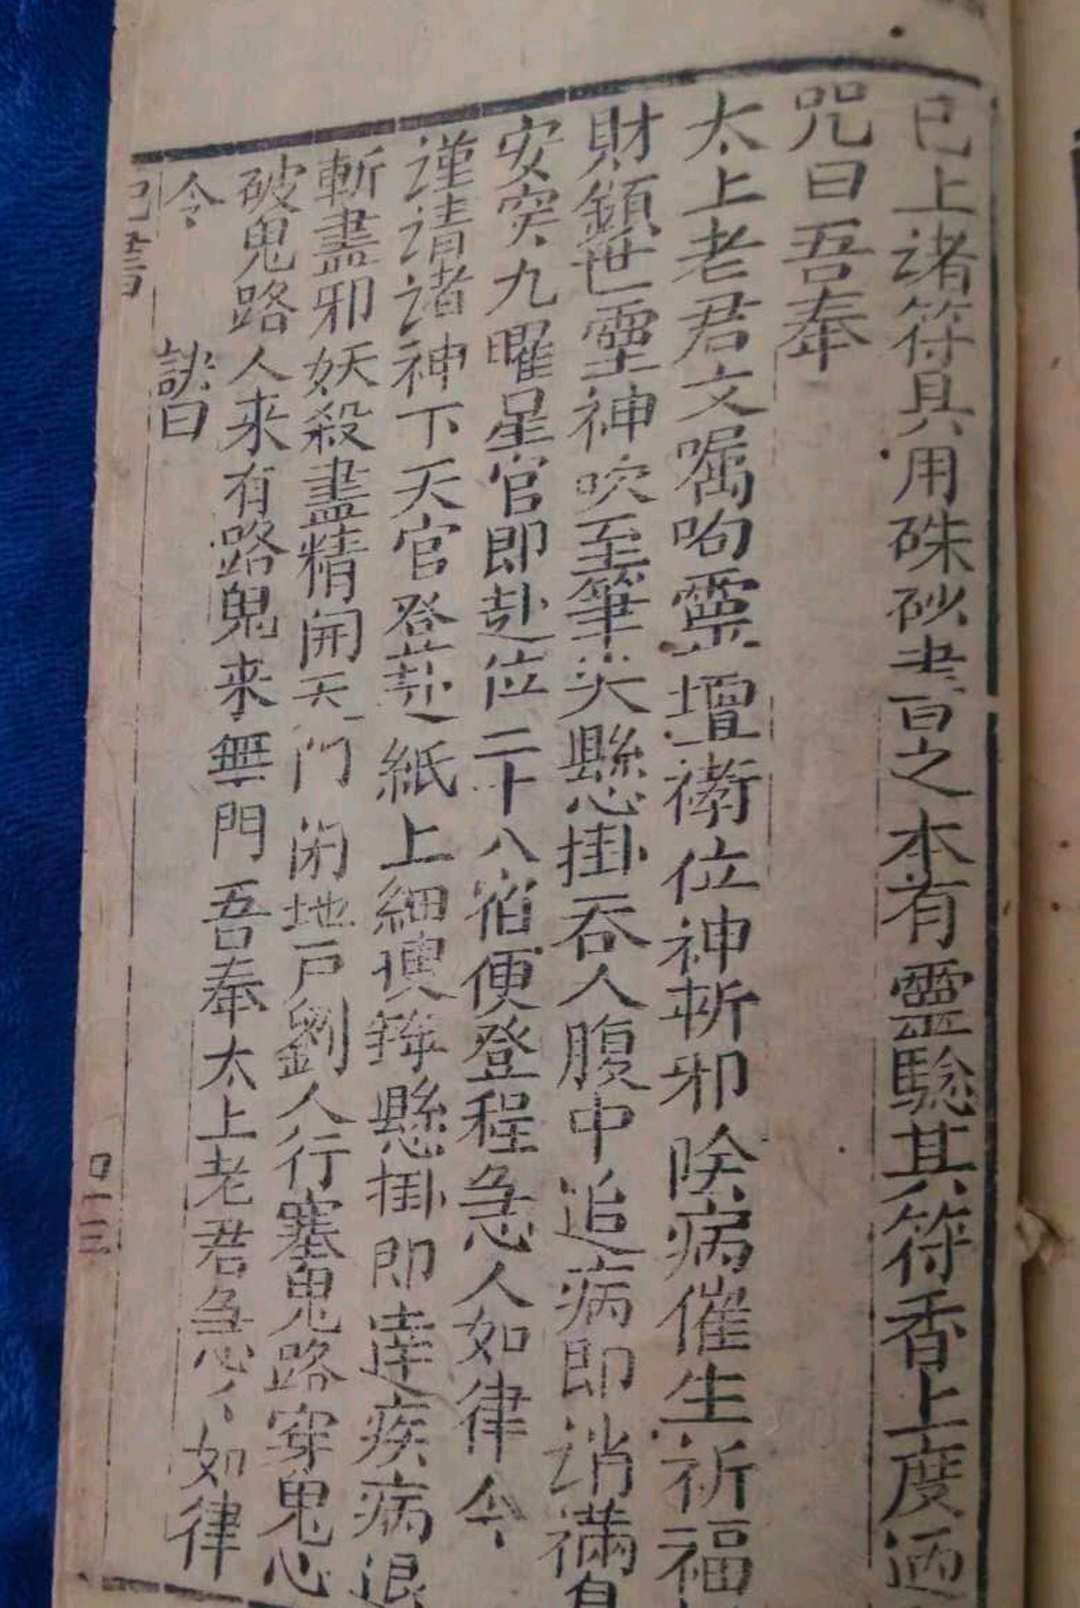 已上諸符具用硃砂書之本有靈驗其符香上度
咒曰吾奉
太上老君文嘱呴靈壇衛位神斬邪 病催生祈福
財鎖世 神吹至筆尖懸掛吞人腹中追病即消滿身
安 九曜星官即赴位二十八宿便登程急人如律令
謹請諸神下天官登赴紙上細 懸掛即達疾病退
斬盡邪妖殺盡精開天門闭地戶劉人行塞鬼路穿鬼心
破鬼路人来有路鬼来無門吾奉太上老君急〻如律
令 訣曰